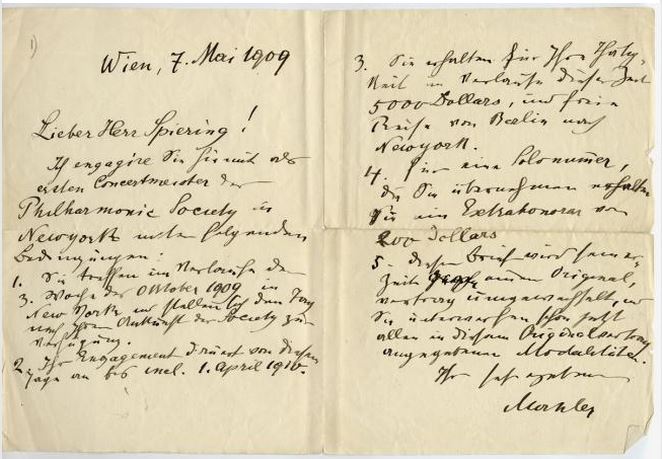 1)
Wien, 7. Mai 1909
Lieber Herr Spiering!
Ich engagire Sie hiemit als
ersten Concertmeister der
Philharmonic Society in
Newyork unter folgenden
Bedingungen:
1. Sie treffen im Verlaufe der
3. Woche des Oktober 1909 in
New York ein stellen sich den Tag
nach Ihrer Ankunft der Society zur
Verfügung.
2. Ihr Engagement dauert von diesem
Tage an bis incl. 1. April 1910.
3. Sie erhalten für Ihre Thätig-
keit im Verlaufe dieser Zeit
5000 Dollars, und freie
Reise von Berlin nach
Newyork.
4. Für eine Solonummer,
die Sie übernehmen erhalten
Sie ein Extrahonorar von
200 Dollars
5. Dieser Brief wird seiner
Zeit gegen einen Original,
vertrag umgewechselt, und
Sie unterwerfen schon jetzt
allen in diesem Originalvertrag
angegebenen Modalitäten.
Ihr sehr ergebener
Mahler